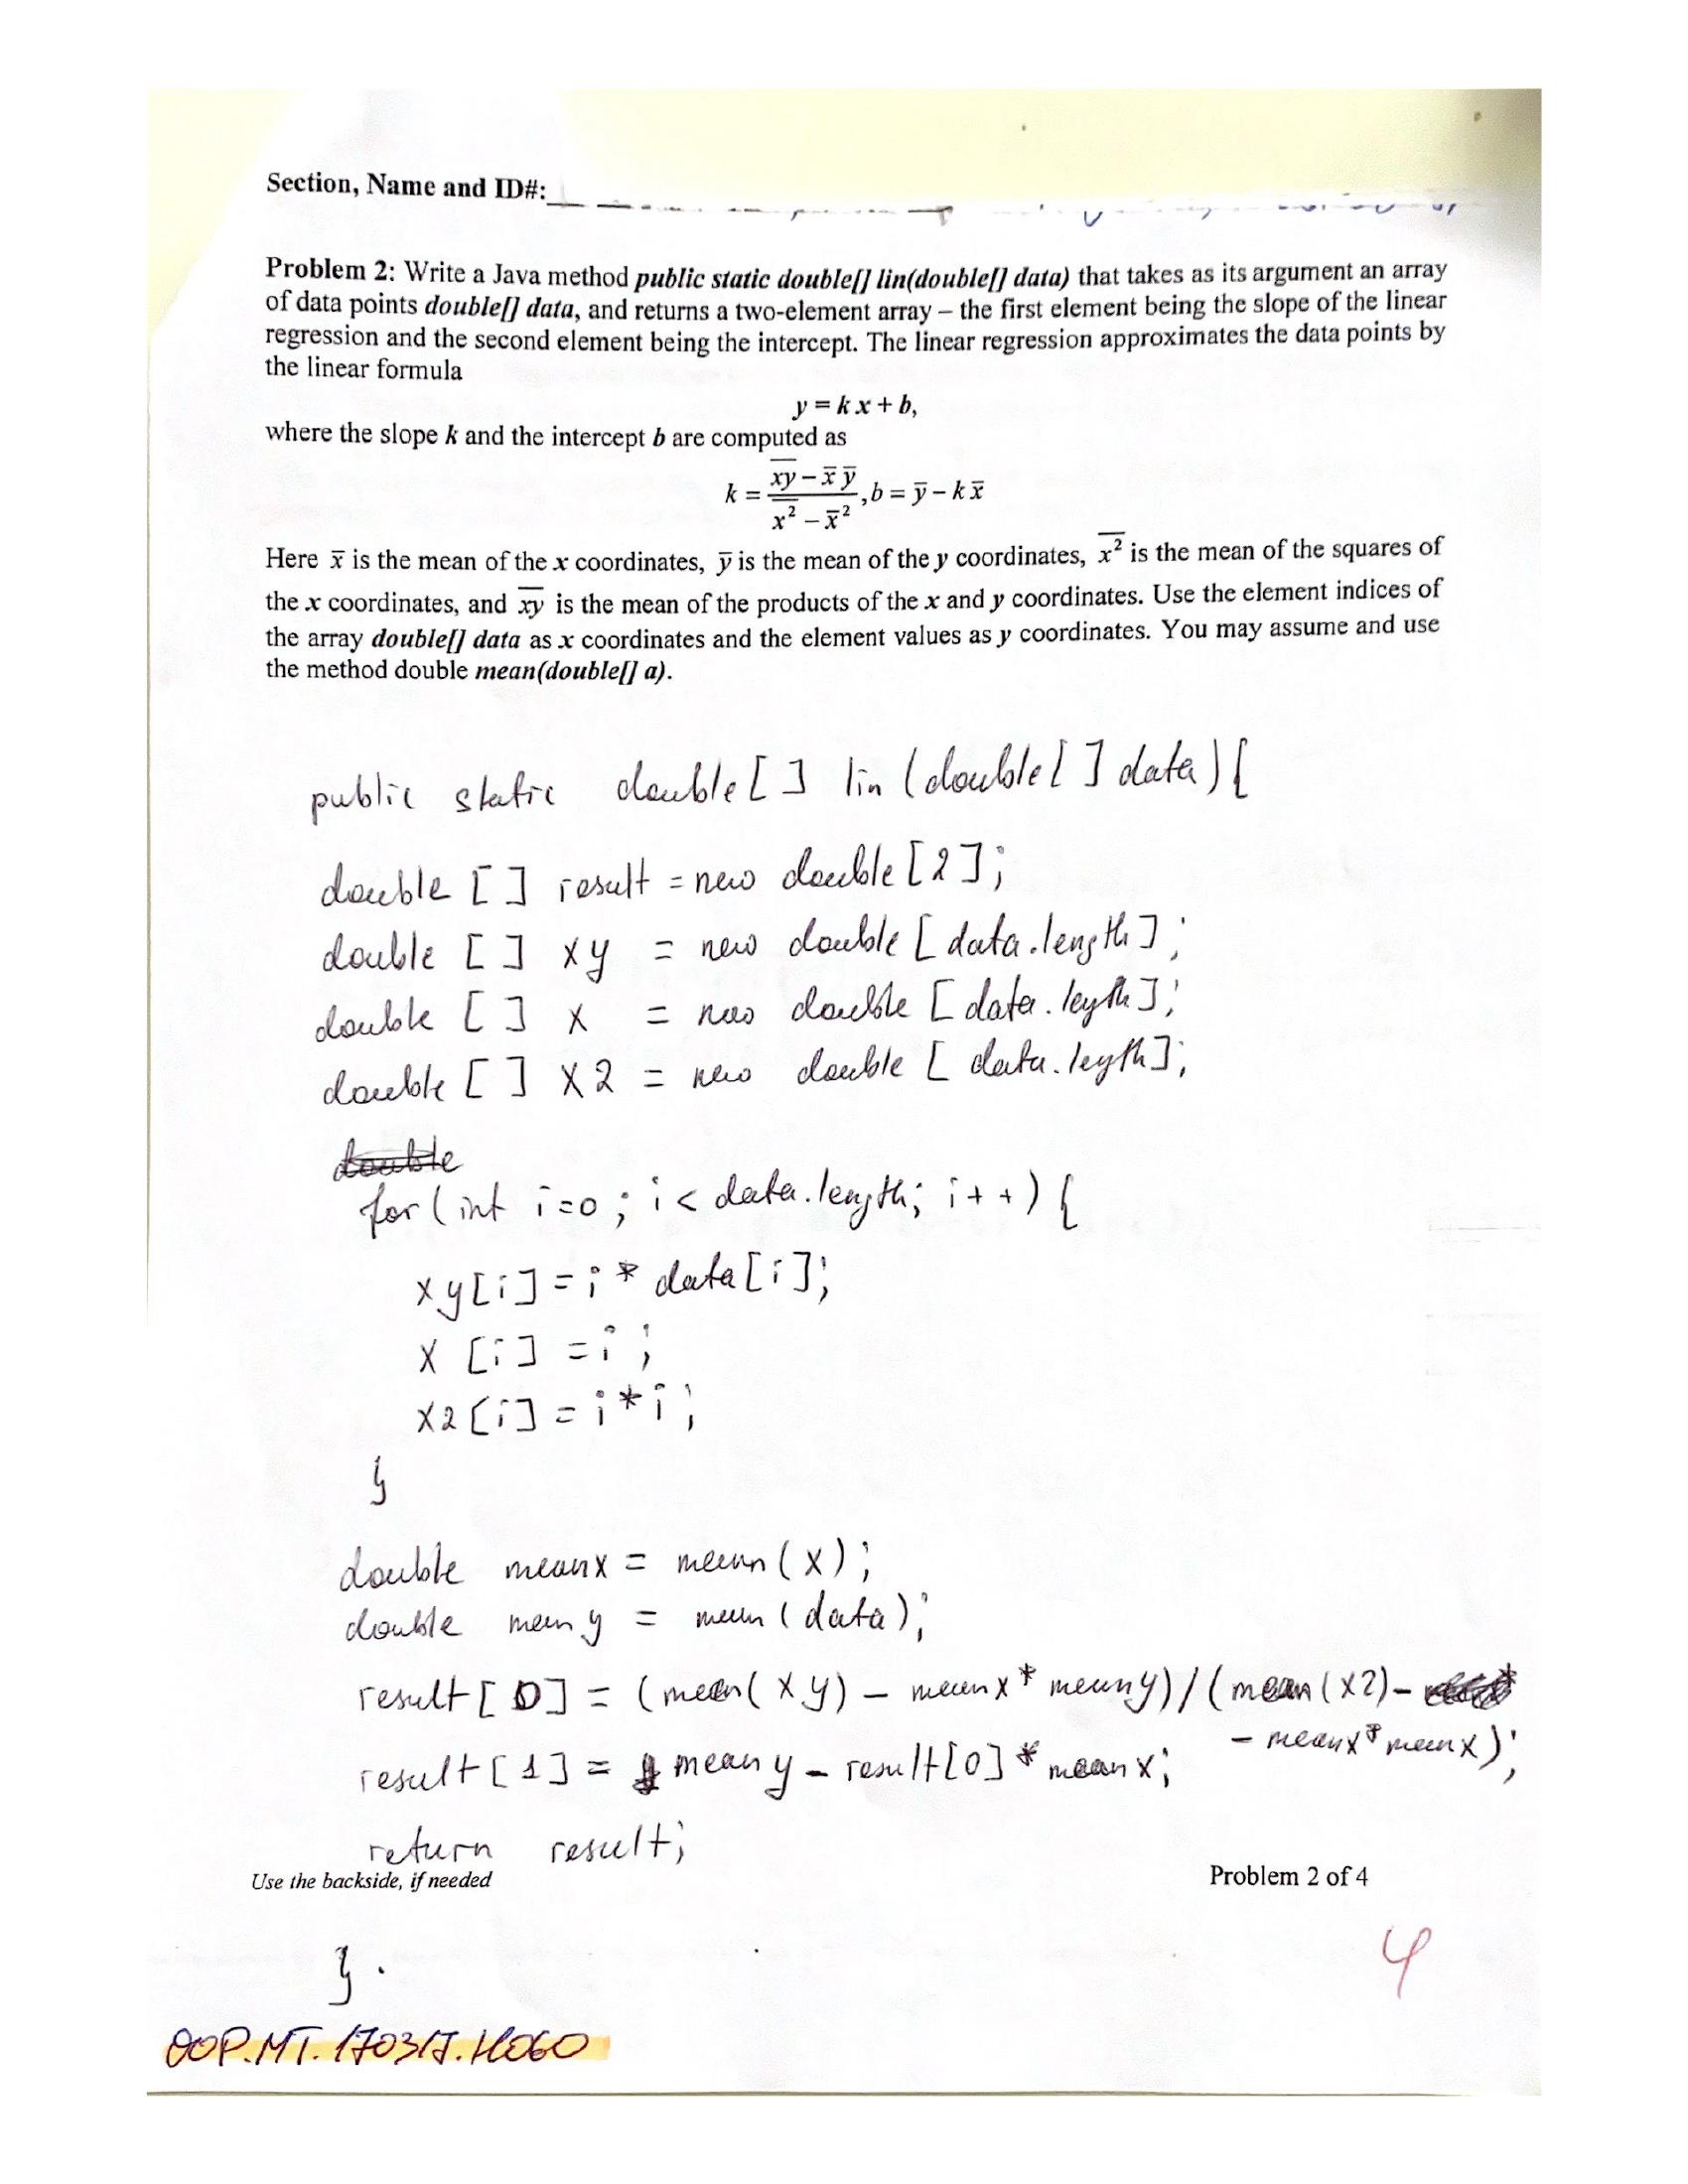 Section, Name and ID#:
Problem 2: Write a Java method public static double[] lin(double[] data) that takes as its argument an array
of data points double[] data, and returns a two-element array – the first element being the slope of the linear
regression and the second element being the intercept. The linear regression approximates the data points by
the linear formula
y = k x + b,
where the slope k and the intercept b are computed as
k = (x̅y̅ – x̅ y̅) / (x̅²̅ – x̅²), b = y̅ – k x̅
Here x̅ is the mean of the x coordinates, y̅ is the mean of the y coordinates, x̅²̅ is the mean of the squares of
the x coordinates, and x̅y̅ is the mean of the products of the x and y coordinates. Use the element indices of
the array double[] data as x coordinates and the element values as y coordinates. You may assume and use
the method double mean(double[] a).
public static double[ ] lin (double[ ] data) {
double [ ] result = new double [2];
double [ ] xy = new double [data.length];
double [ ] x = new double [data.length];
double [ ] x2 = new double [data.length];
double
for (int i=0; i < data.length; i++) {
xy[i] = i * data[i];
x [i] = i;
x2[i] = i*i;
}
double meanx = mean (x);
double meany = mean (data);
result [0] = (mean( xy) – meanx * meany) / (mean (x2) –
– meanx * meanx);
result [1] = meany – result[0] * meanx;
return result;
Use the backside, if needed
Problem 2 of 4
}.
4
OOP.MT.170317.H060